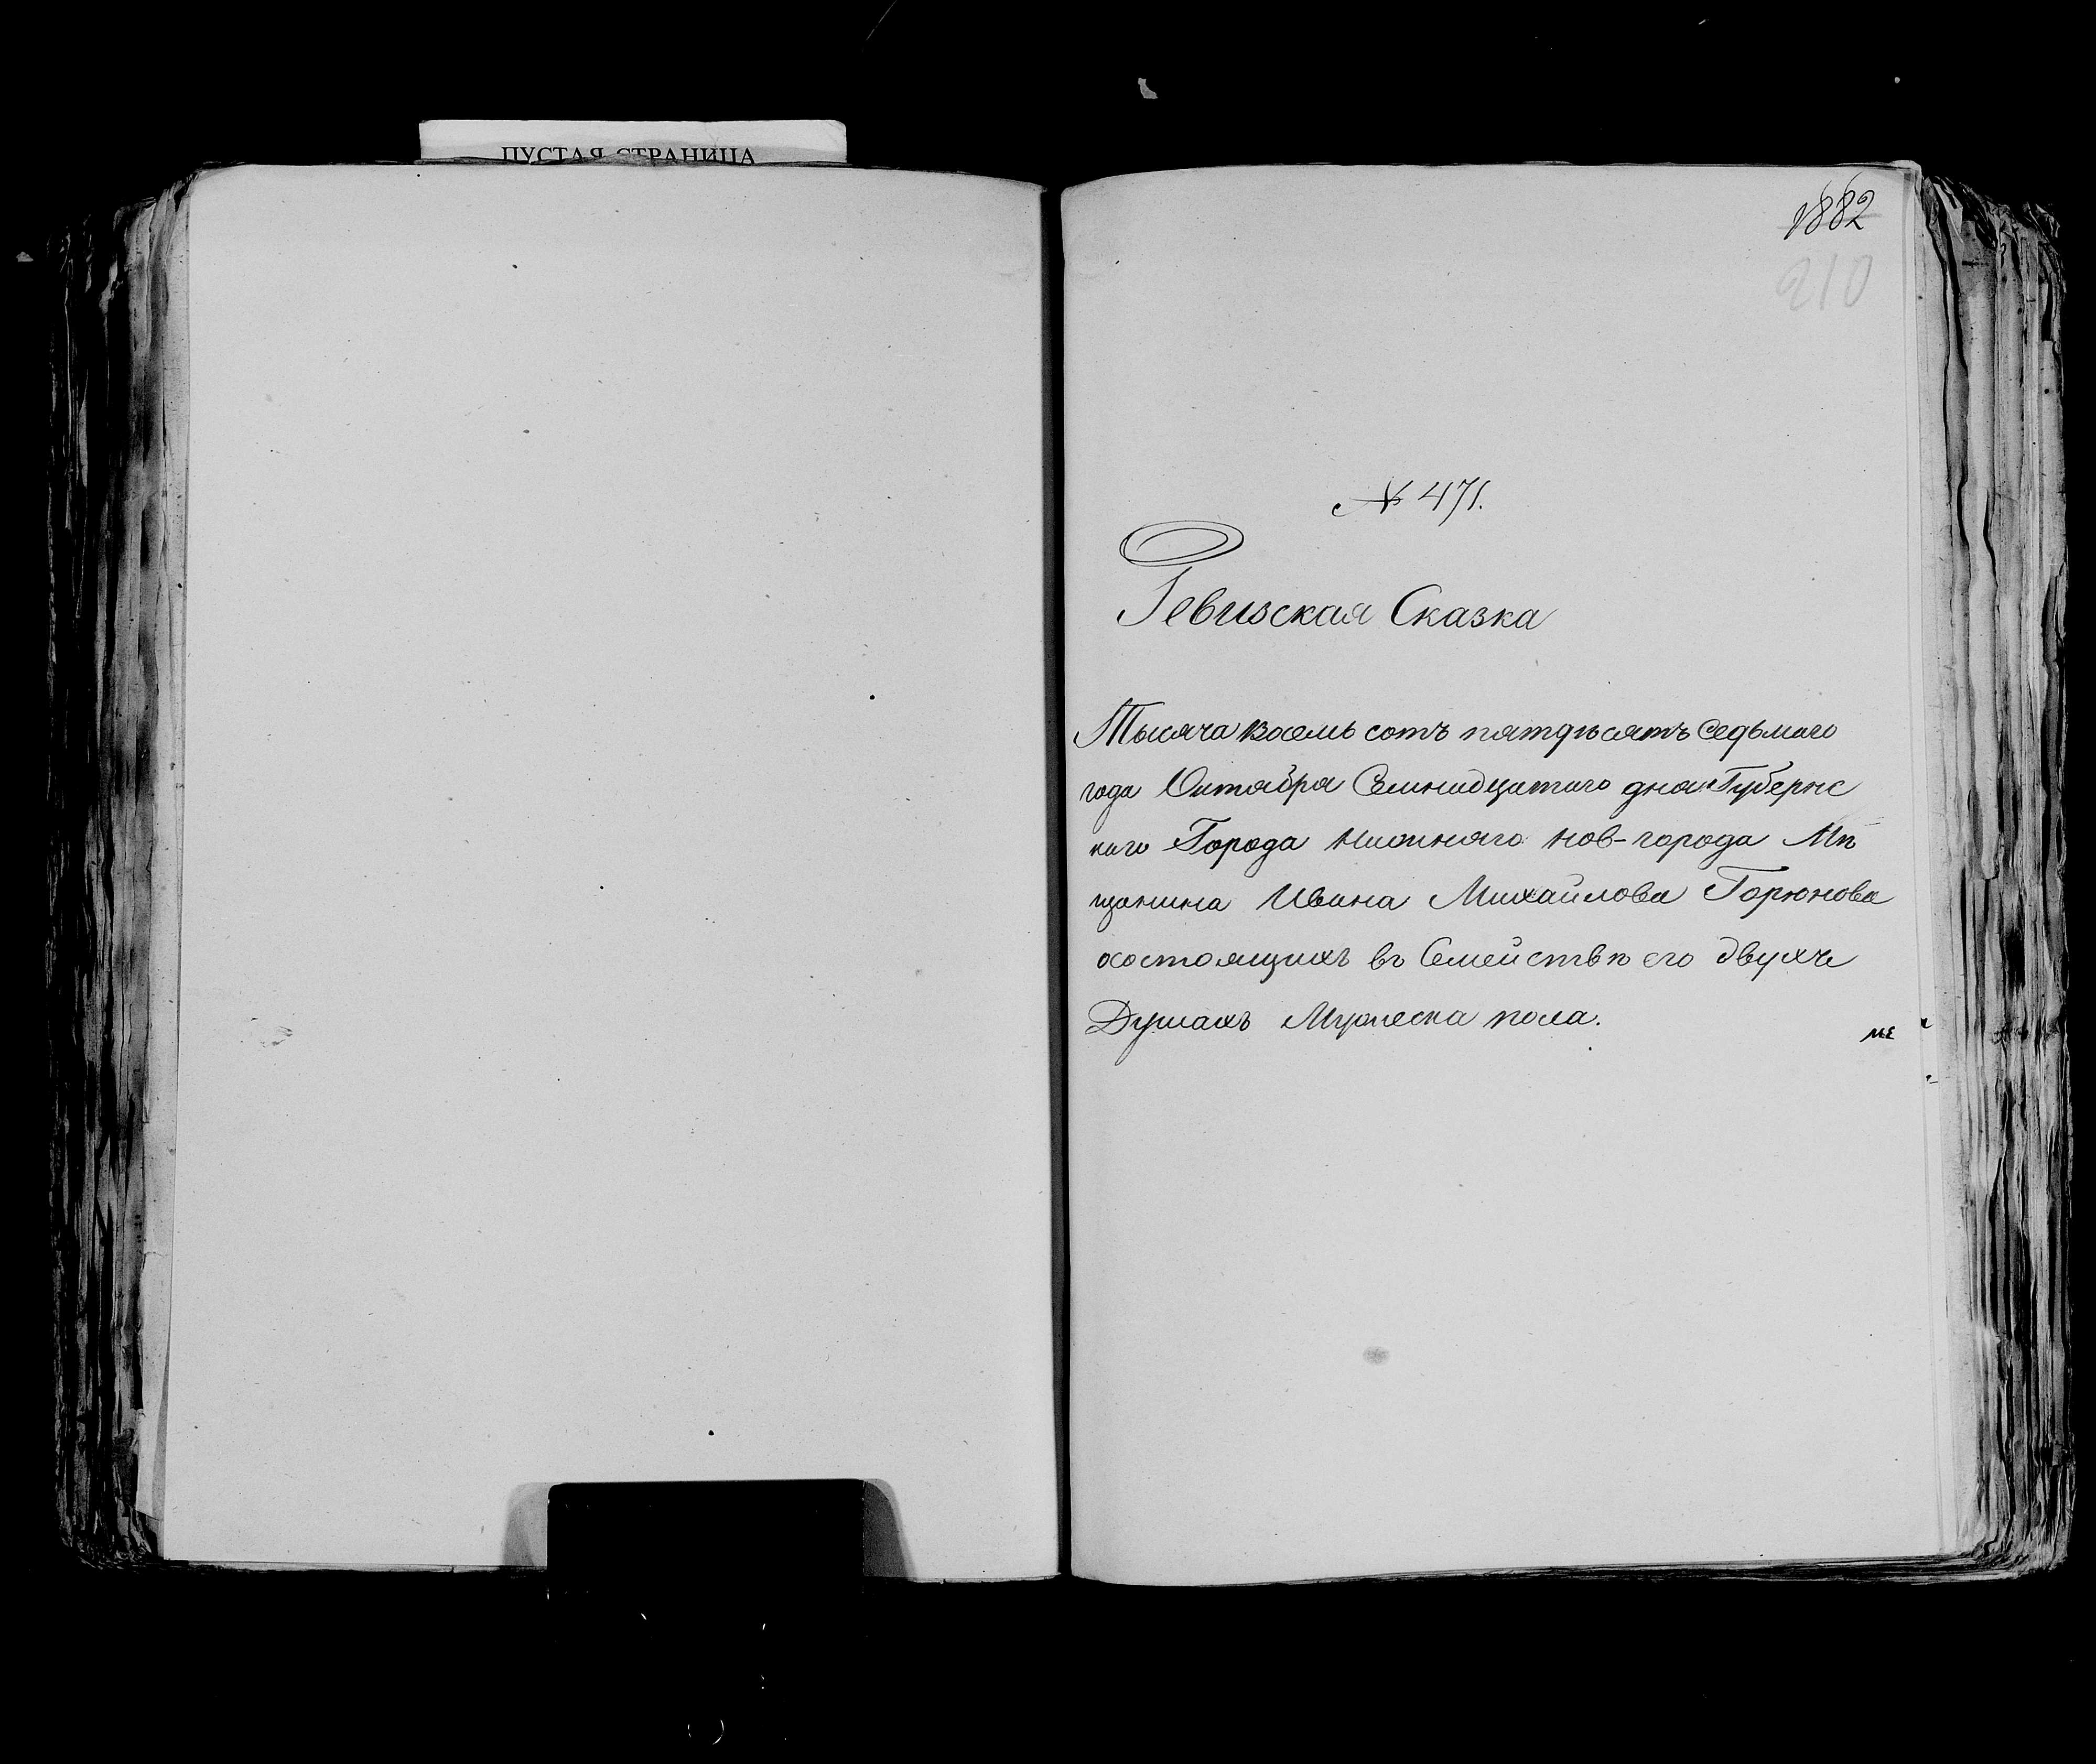 ПУСТАЯ СТРАНИЦА
1882
210
№ 471.
Ревизская Сказка
Тысяча восемь сотъ пятдѣсятъ седьмаго
года Октября Семнадцатаго дня Губернс
каго Города Нижняго нов-города Мѣ
щанина Ивана Михайлова Горюнова
осостоящихъ въ Семействѣ его двухъ
Душахъ Мужеска пола.